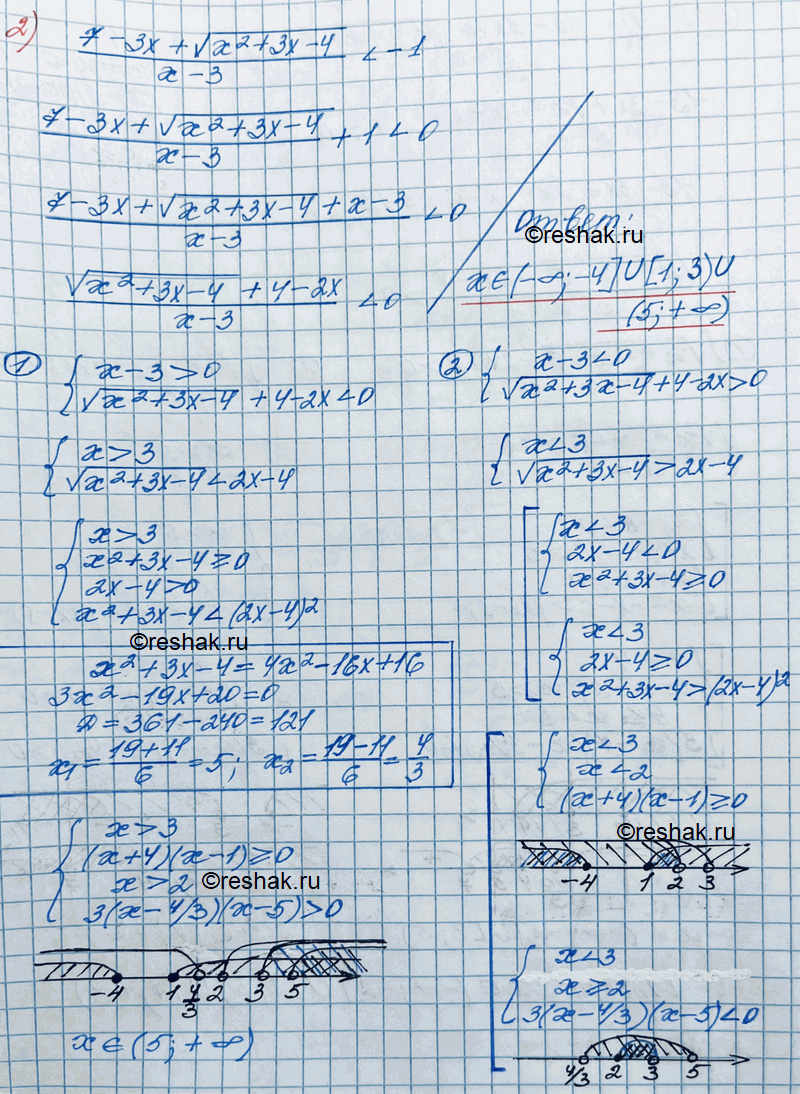 2)
7-3x+√(x²+3x-4) / x-3 < -1
7-3x+√(x²+3x-4) / x-3 + 1 < 0
7-3x+√(x²+3x-4) + x-3 / x-3 < 0
√(x²+3x-4) + 4-2x / x-3 < 0
Ответ:
©reshak.ru
x∈(-∞;-4]∪[1;3)∪
(5;+∞)
①
{ x-3>0
√(x²+3x-4) + 4-2x<0
{ x>3
√(x²+3x-4) < 2x-4
{ x>3
x²+3x-4≥0
2x-4>0
x²+3x-4<(2x-4)²
©reshak.ru
x²+3x-4=4x²-16x+16
3x²-19x+20=0
D=361-240=121
x₁=(19+11)/6=5; x₂=(19-11)/6=4/3
{ x>3
(x+4)(x-1)≥0
x>2
©reshak.ru
3(x-4/3)(x-5)>0
-4 1 4/3 2 3 5
x∈(5;+∞)
②
{ x-3<0
√(x²+3x-4)+4-2x>0
{ x<3
√(x²+3x-4) > 2x-4
[ { x<3
2x-4<0
x²+3x-4≥0
{ x<3
2x-4≥0
x²+3x-4>(2x-4)²
[ { x<3
x<2
(x+4)(x-1)≥0
©reshak.ru
-4 1 2 3
{ x<3
x≥2
3(x-4/3)(x-5)<0
4/3 2 3 5